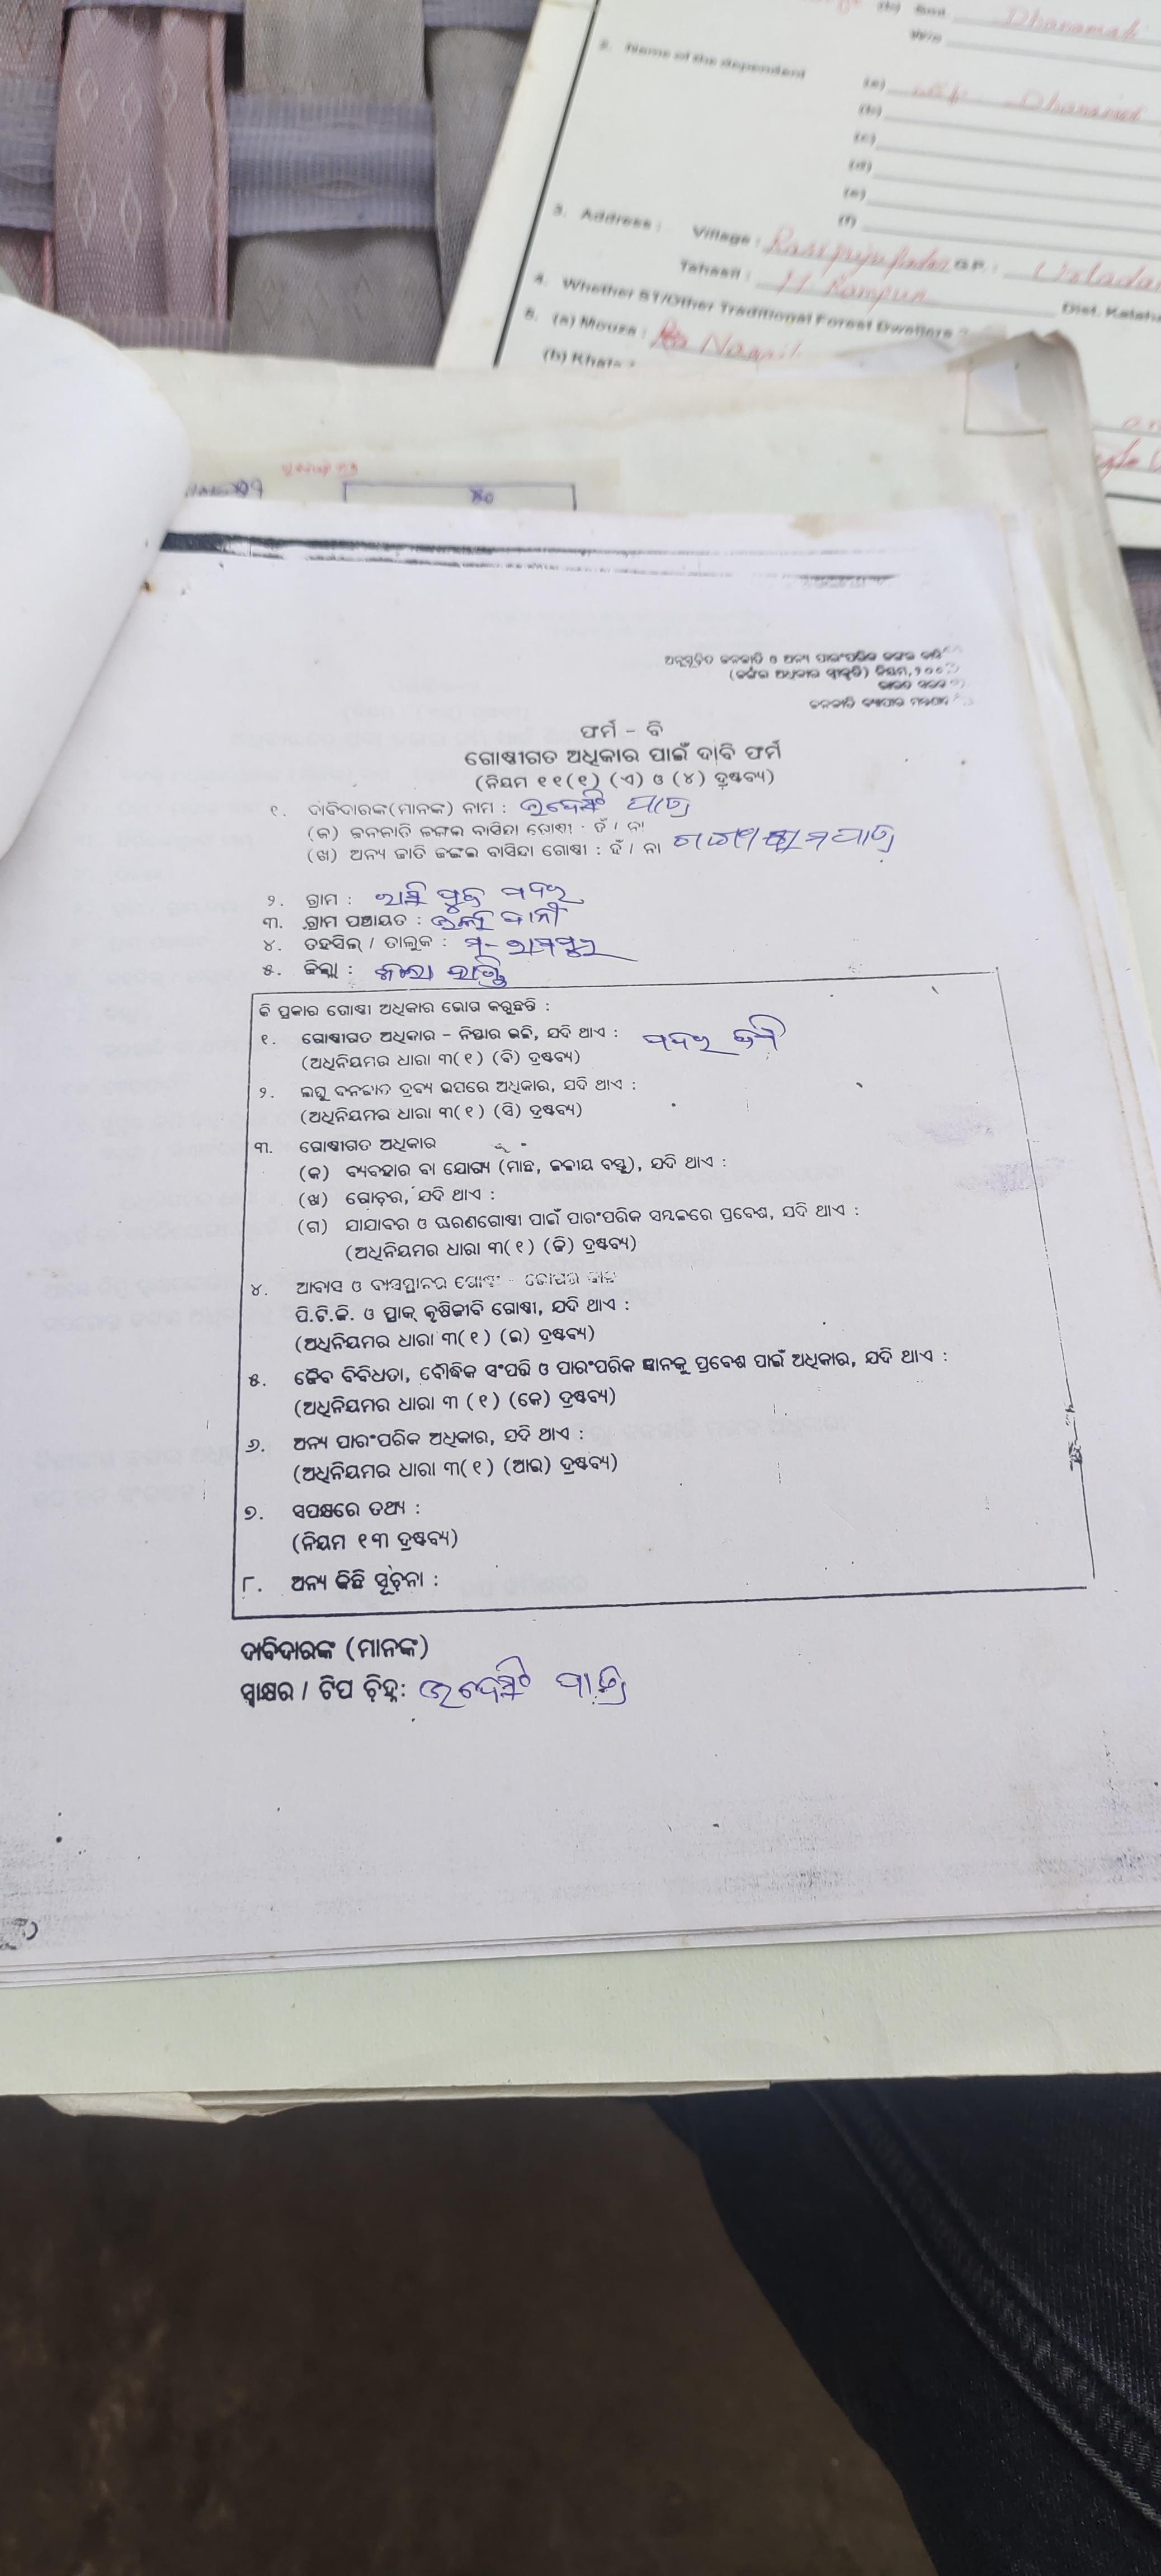 (b) Smt. Dhanamati
W/o
2. Name of the dependent
(a)
(b)
(c)
(d)
(e)
(f)
3. Address : Village : G.P. :
Tahasil : M Rampur Dist.
4. Whether ST/Other Traditional Forest Dwellers ?
5. (a) Mouza :
(b) Khata :
ଅନୁସୂଚିତ ଜନଜାତି ଓ ଅନ୍ୟ ପାରଂପରିକ ଜଙ୍ଗଲ
(ଜଙ୍ଗଲ ଅଧିକାର ସ୍ୱୀକୃତି) ନିୟମ,
ଭାରତ ସରକାର
ଜନଜାତି ବ୍ୟାପାର ମନ୍ତ୍ରଣାଳୟ
ଫର୍ମ - ବି
ଗୋଷ୍ଠୀଗତ ଅଧିକାର ପାଇଁ ଦାବି ଫର୍ମ
(ନିୟମ ୧୧(୧) (ଏ) ଓ (୪) ଦ୍ରଷ୍ଟବ୍ୟ)
୧. ଦାବିଦାରଙ୍କ(ମାନଙ୍କ) ନାମ : ଉଦେସିଂ ପାତ୍ର
(କ) ଜନଜାତି ଜଙ୍ଗଲ ବାସିନ୍ଦା ଗୋଷ୍ଠୀ : ହଁ / ନା
(ଖ) ଅନ୍ୟ ଜାତି ଜଙ୍ଗଲ ବାସିନ୍ଦା ଗୋଷ୍ଠୀ : ହଁ / ନା
୨. ଗ୍ରାମ :
୩. ଗ୍ରାମ ପଞ୍ଚାୟତ :
୪. ତହସିଲ୍ / ତାଲୁକ : ମ-ରାମପୁର
୫. ଜିଲ୍ଲା :
କି ପ୍ରକାର ଗୋଷ୍ଠୀ ଅଧିକାର ଭୋଗ କରୁଛନ୍ତି :
୧. ଗୋଷ୍ଠୀଗତ ଅଧିକାର - ନିସ୍ତାର ଭଳି, ଯଦି ଥାଏ :
(ଅଧିନିୟମର ଧାରା ୩(୧) (ବି) ଦ୍ରଷ୍ଟବ୍ୟ)
୨. ଲଘୁ ବନଜାତ ଦ୍ରବ୍ୟ ଉପରେ ଅଧିକାର, ଯଦି ଥାଏ :
(ଅଧିନିୟମର ଧାରା ୩(୧) (ସି) ଦ୍ରଷ୍ଟବ୍ୟ)
୩. ଗୋଷ୍ଠୀଗତ ଅଧିକାର
(କ) ବ୍ୟବହାର ବା ଯୋଗ୍ୟ (ମାଛ, ଜଳୀୟ ବସ୍ତୁ), ଯଦି ଥାଏ :
(ଖ) ଗୋଚର, ଯଦି ଥାଏ :
(ଗ) ଯାଯାବର ଓ ଚାରଣଗୋଷ୍ଠୀ ପାଇଁ ପାରଂପରିକ ସମ୍ବଳରେ ପ୍ରବେଶ, ଯଦି ଥାଏ :
(ଅଧିନିୟମର ଧାରା ୩(୧) (ଡି) ଦ୍ରଷ୍ଟବ୍ୟ)
୪. ଆବାସ ଓ ବାସସ୍ଥାନର
ପି.ଟି.ଜି. ଓ ପ୍ରାକ୍ କୃଷିଜୀବି ଗୋଷ୍ଠୀ, ଯଦି ଥାଏ :
(ଅଧିନିୟମର ଧାରା ୩(୧) (ଇ) ଦ୍ରଷ୍ଟବ୍ୟ)
୫. ଜୈବ ବିବିଧତା, ବୌଦ୍ଧିକ ସଂପତ୍ତି ଓ ପାରଂପରିକ ଜ୍ଞାନକୁ ପ୍ରବେଶ ପାଇଁ ଅଧିକାର, ଯଦି ଥାଏ :
(ଅଧିନିୟମର ଧାରା ୩ (୧) (କେ) ଦ୍ରଷ୍ଟବ୍ୟ)
୬. ଅନ୍ୟ ପାରଂପରିକ ଅଧିକାର, ଯଦି ଥାଏ :
(ଅଧିନିୟମର ଧାରା ୩(୧) (ଆଇ) ଦ୍ରଷ୍ଟବ୍ୟ)
୭. ସପକ୍ଷରେ ତଥ୍ୟ :
(ନିୟମ ୧୩ ଦ୍ରଷ୍ଟବ୍ୟ)
୮. ଅନ୍ୟ କିଛି ସୂଚନା :
ଦାବିଦାରଙ୍କ (ମାନଙ୍କ)
ସ୍ୱାକ୍ଷର / ଟିପ ଚିହ୍ନ: ଉଦେସିଂ ପାତ୍ର